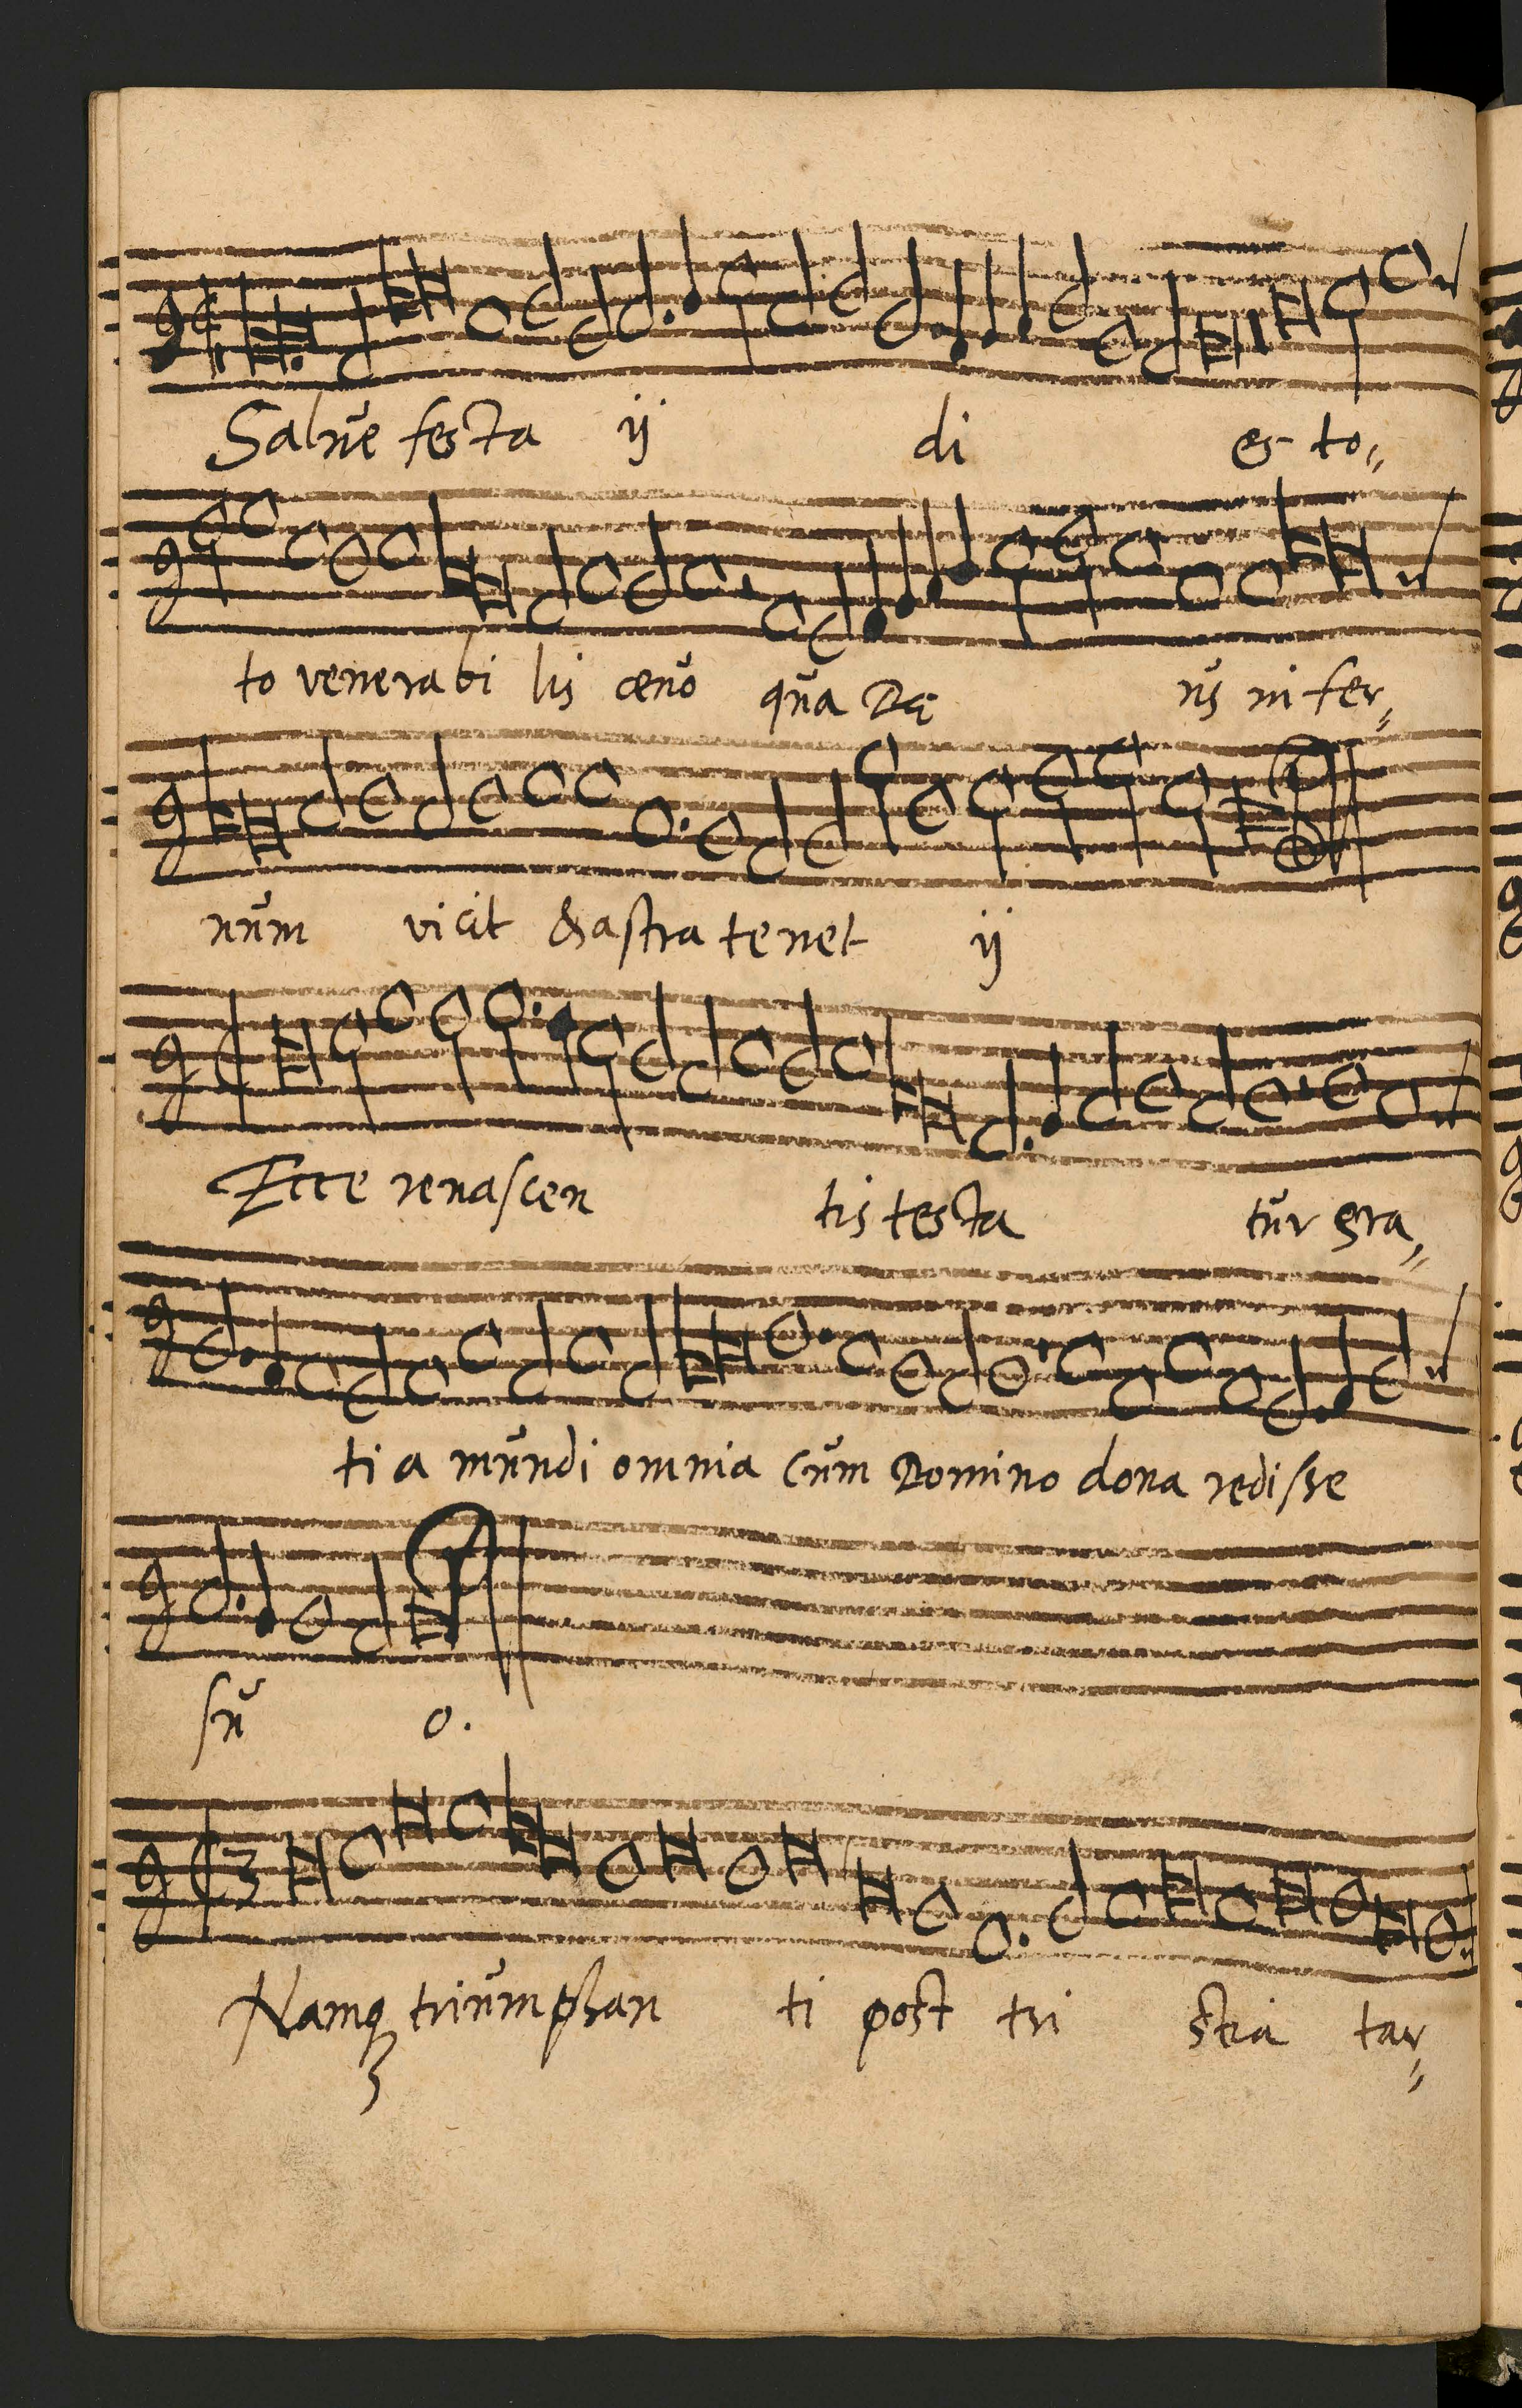 Salue festa ij di es to„
to venerabi lis œuo qua Dę us in fer„
num vicit & astra tenet ij
Ecce renascen tis testa tur gra„
ti a mundi omnia cum Domino dona redisse
su o.
3
Namq triumphan ti post tri stia tar„